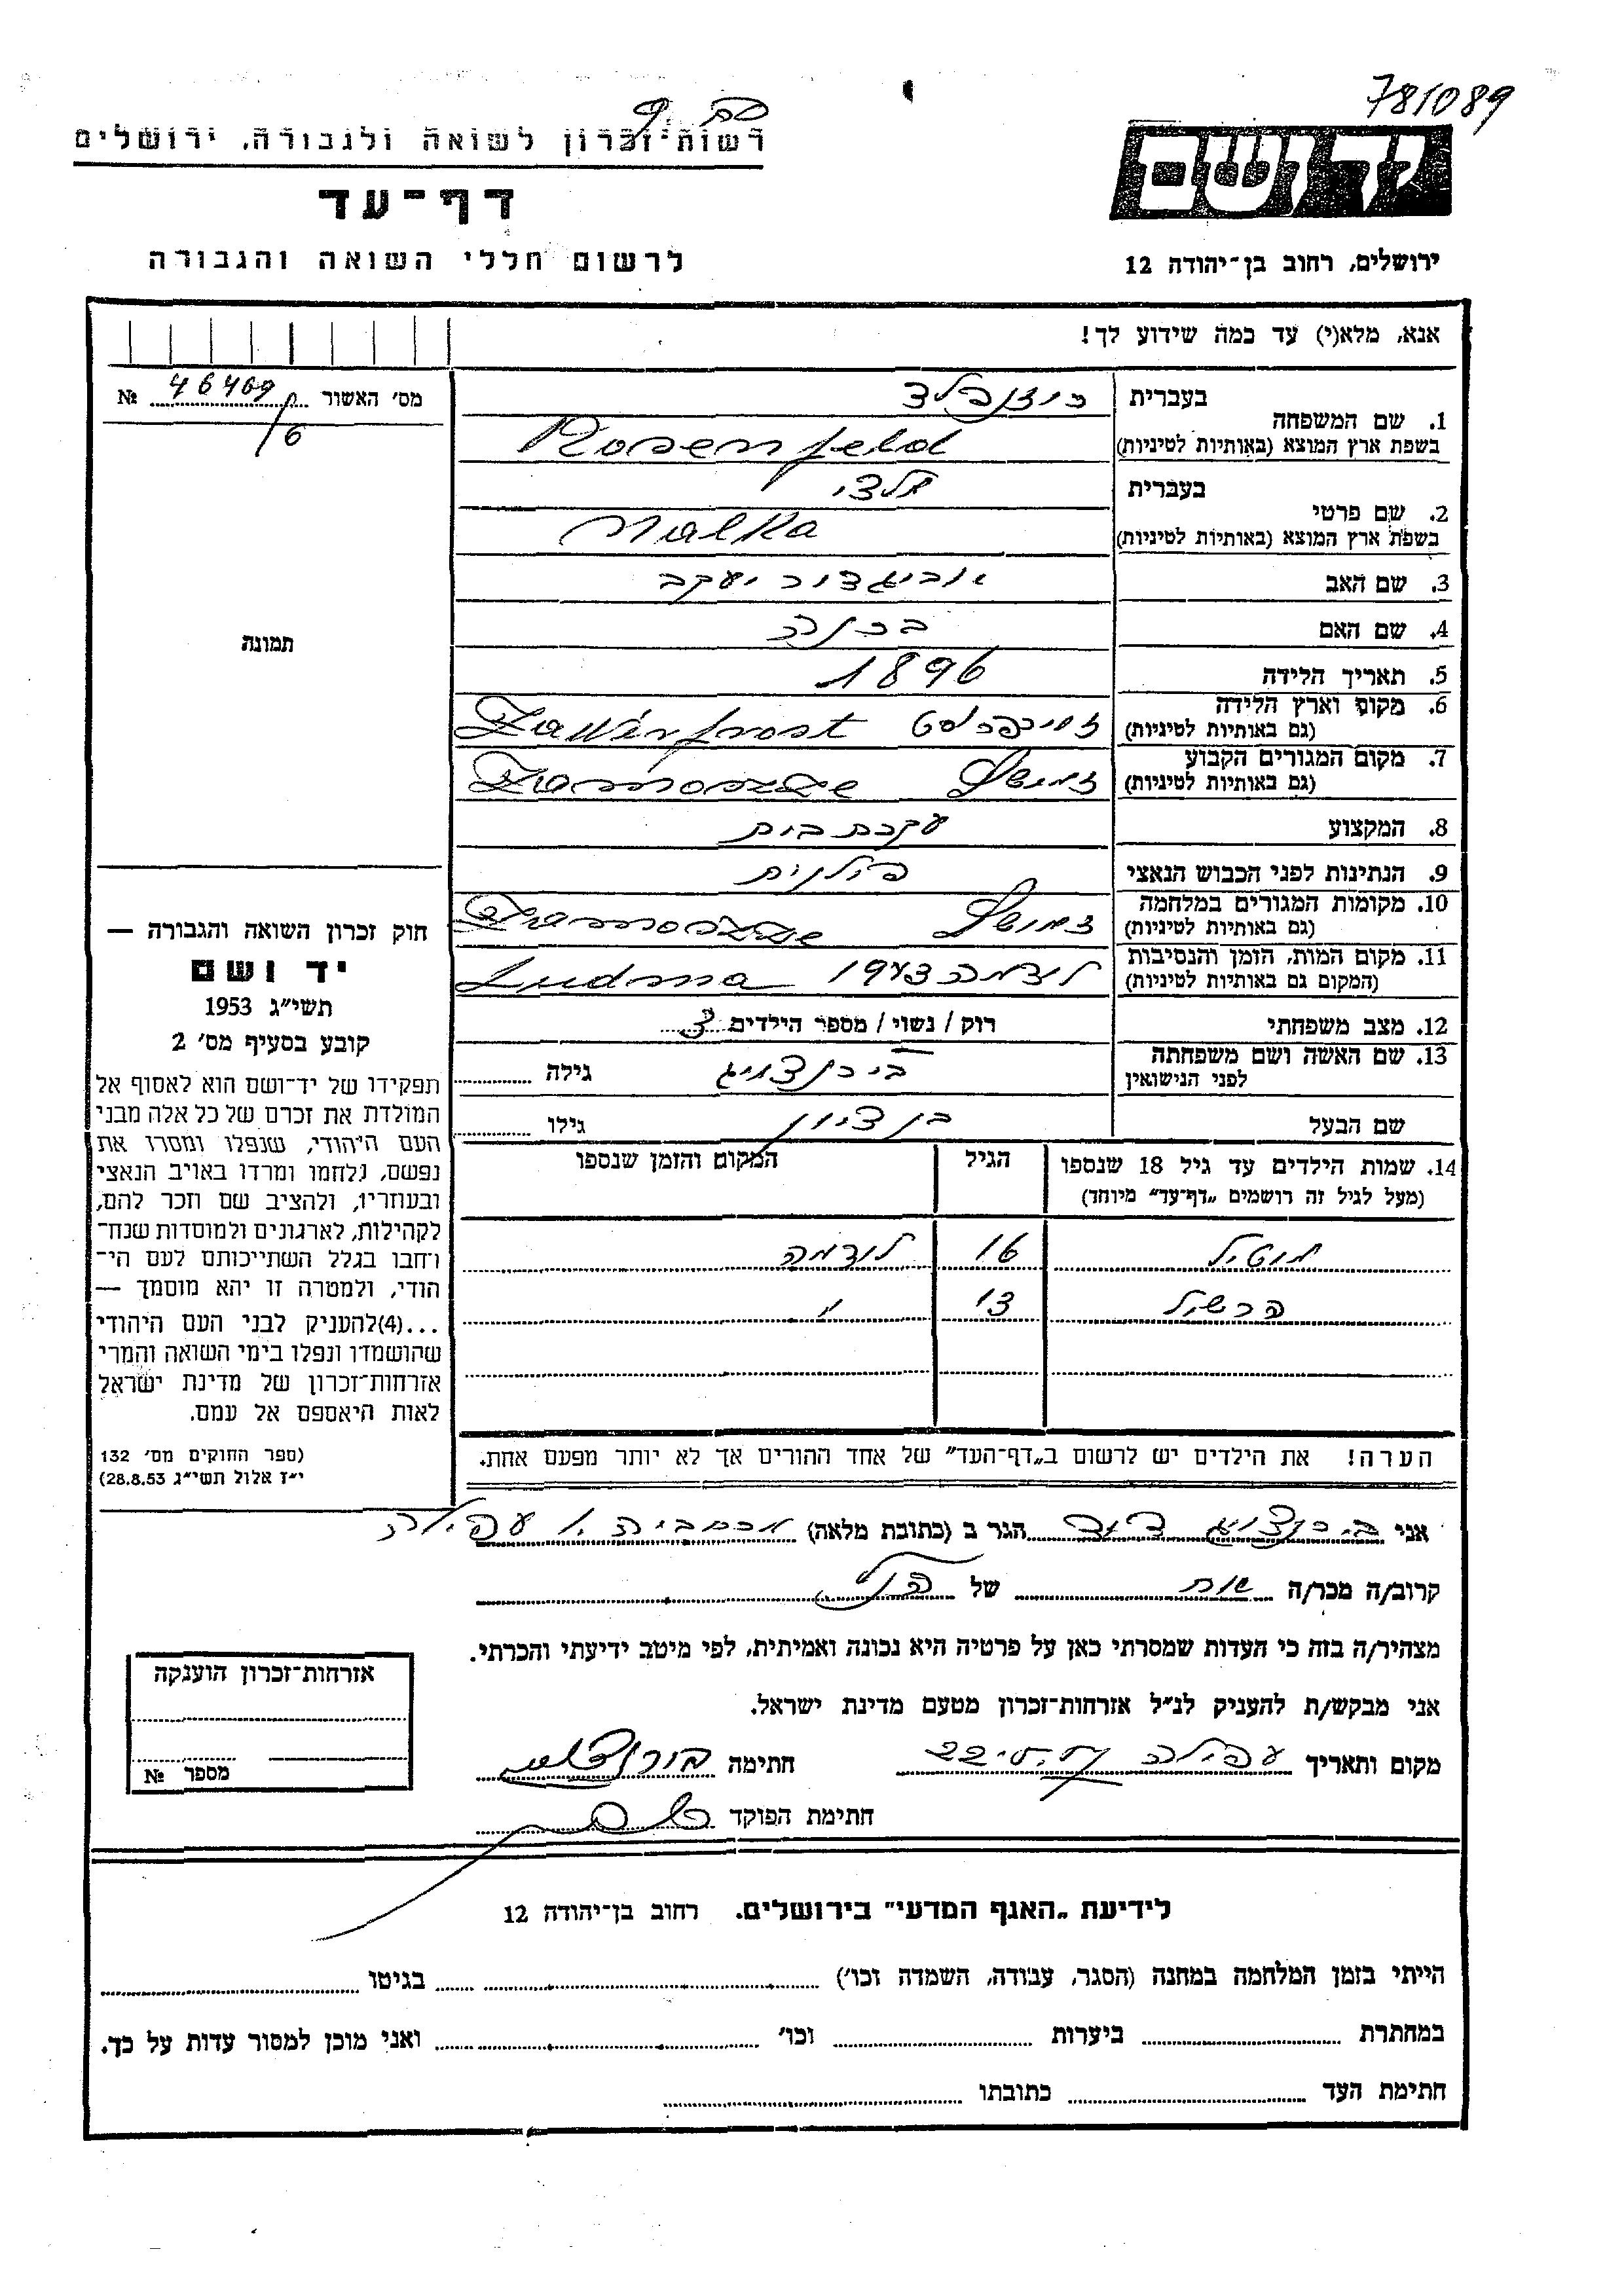 781089
יד ושם
רשות־זכרון לשואה ולגבורה, ירושלים
דף־עד
לרשום חללי השואה והגבורה
ירושלים, רחוב בן־יהודה 12
אנא, מלא(י) עד כמה שידוע לך!
מס׳ האשור 46469 №
/6
1. שם המשפחה בעברית רוזנפלד
בשפת ארץ המוצא (באותיות לטיניות) Rosenfeld
2. שם פרטי בעברית
בשפת ארץ המוצא (באותיות לטיניות) Malka
3. שם האב אביגדור יעקב
4. שם האם ברכה
5. תאריך הלידה 1896
6. מקום וארץ הלידה
(גם באותיות לטיניות)
7. מקום המגורים הקבוע
(גם באותיות לטיניות) זמושץ
8. המקצוע עקרת בית
9. הנתינות לפני הכבוש הנאצי פולנית
10. מקומות המגורים במלחמה
(גם באותיות לטיניות) זמושץ
11. מקום המות, הזמן והנסיבות
(המקום גם באותיות לטיניות) 1943 Ludma
12. מצב משפחתי רוק / נשוי / מספר הילדים 3
13. שם האשה ושם משפחתה
לפני הנישואין בירנצויג גילה
שם הבעל בן ציון גילו
14. שמות הילדים עד גיל 18 שנספו
(מעל לגיל זה רושמים „דף־עד״ מיוחד)
הגיל
המקום והזמן שנספו
מוטיל 16 לודמה
הרשיל 13 "
הערה! את הילדים יש לרשום ב„דף־העד״ של אחד ההורים אך לא יותר מפעם אחת.
תמונה
חוק זכרון השואה והגבורה —
יד ושם
תשי״ג 1953
קובע בסעיף מס׳ 2
תפקידו של יד־ושם הוא לאסוף אל
המולדת את זכרם של כל אלה מבני
העם היהודי, שנפלו ומסרו את
נפשם, נלחמו ומרדו באויב הנאצי
ובעוזריו, ולהציב שם וזכר להם,
לקהילות, לארגונים ולמוסדות שנח־
רחבו בגלל השתייכותם לעם הי־
הודי, ולמטרה זו יהא מוסמך —
...(4)להעניק לבני העם היהודי
שהושמדו ונפלו בימי השואה והמרי
אזרחות־זכרון של מדינת ישראל
לאות היאספם אל עמם.
(ספר החוקים מס׳ 132
י״ז אלול תשי״ג 28.8.53)
אני בירנצויג דוד הגר ב (כתובת מלאה) עפולה
קרוב/ה מכר/ה אח של הנ״ל
מצהיר/ה בזה כי העדות שמסרתי כאן על פרטיה היא נכונה ואמיתית, לפי מיטב ידיעתי והכרתי.
אני מבקש/ת להעניק לנ״ל אזרחות־זכרון מטעם מדינת ישראל.
מקום ותאריך עפולה חתימה
חתימת הפוקד
אזרחות־זכרון הוענקה
מספר №
לידיעת „האגף המדעי״ בירושלים. רחוב בן־יהודה 12
הייתי בזמן המלחמה במחנה (הסגר, עבודה, השמדה וכו׳) בגיטו
במחתרת ביערות וכו׳ ואני מוכן למסור עדות על כך.
חתימת העד כתובתו